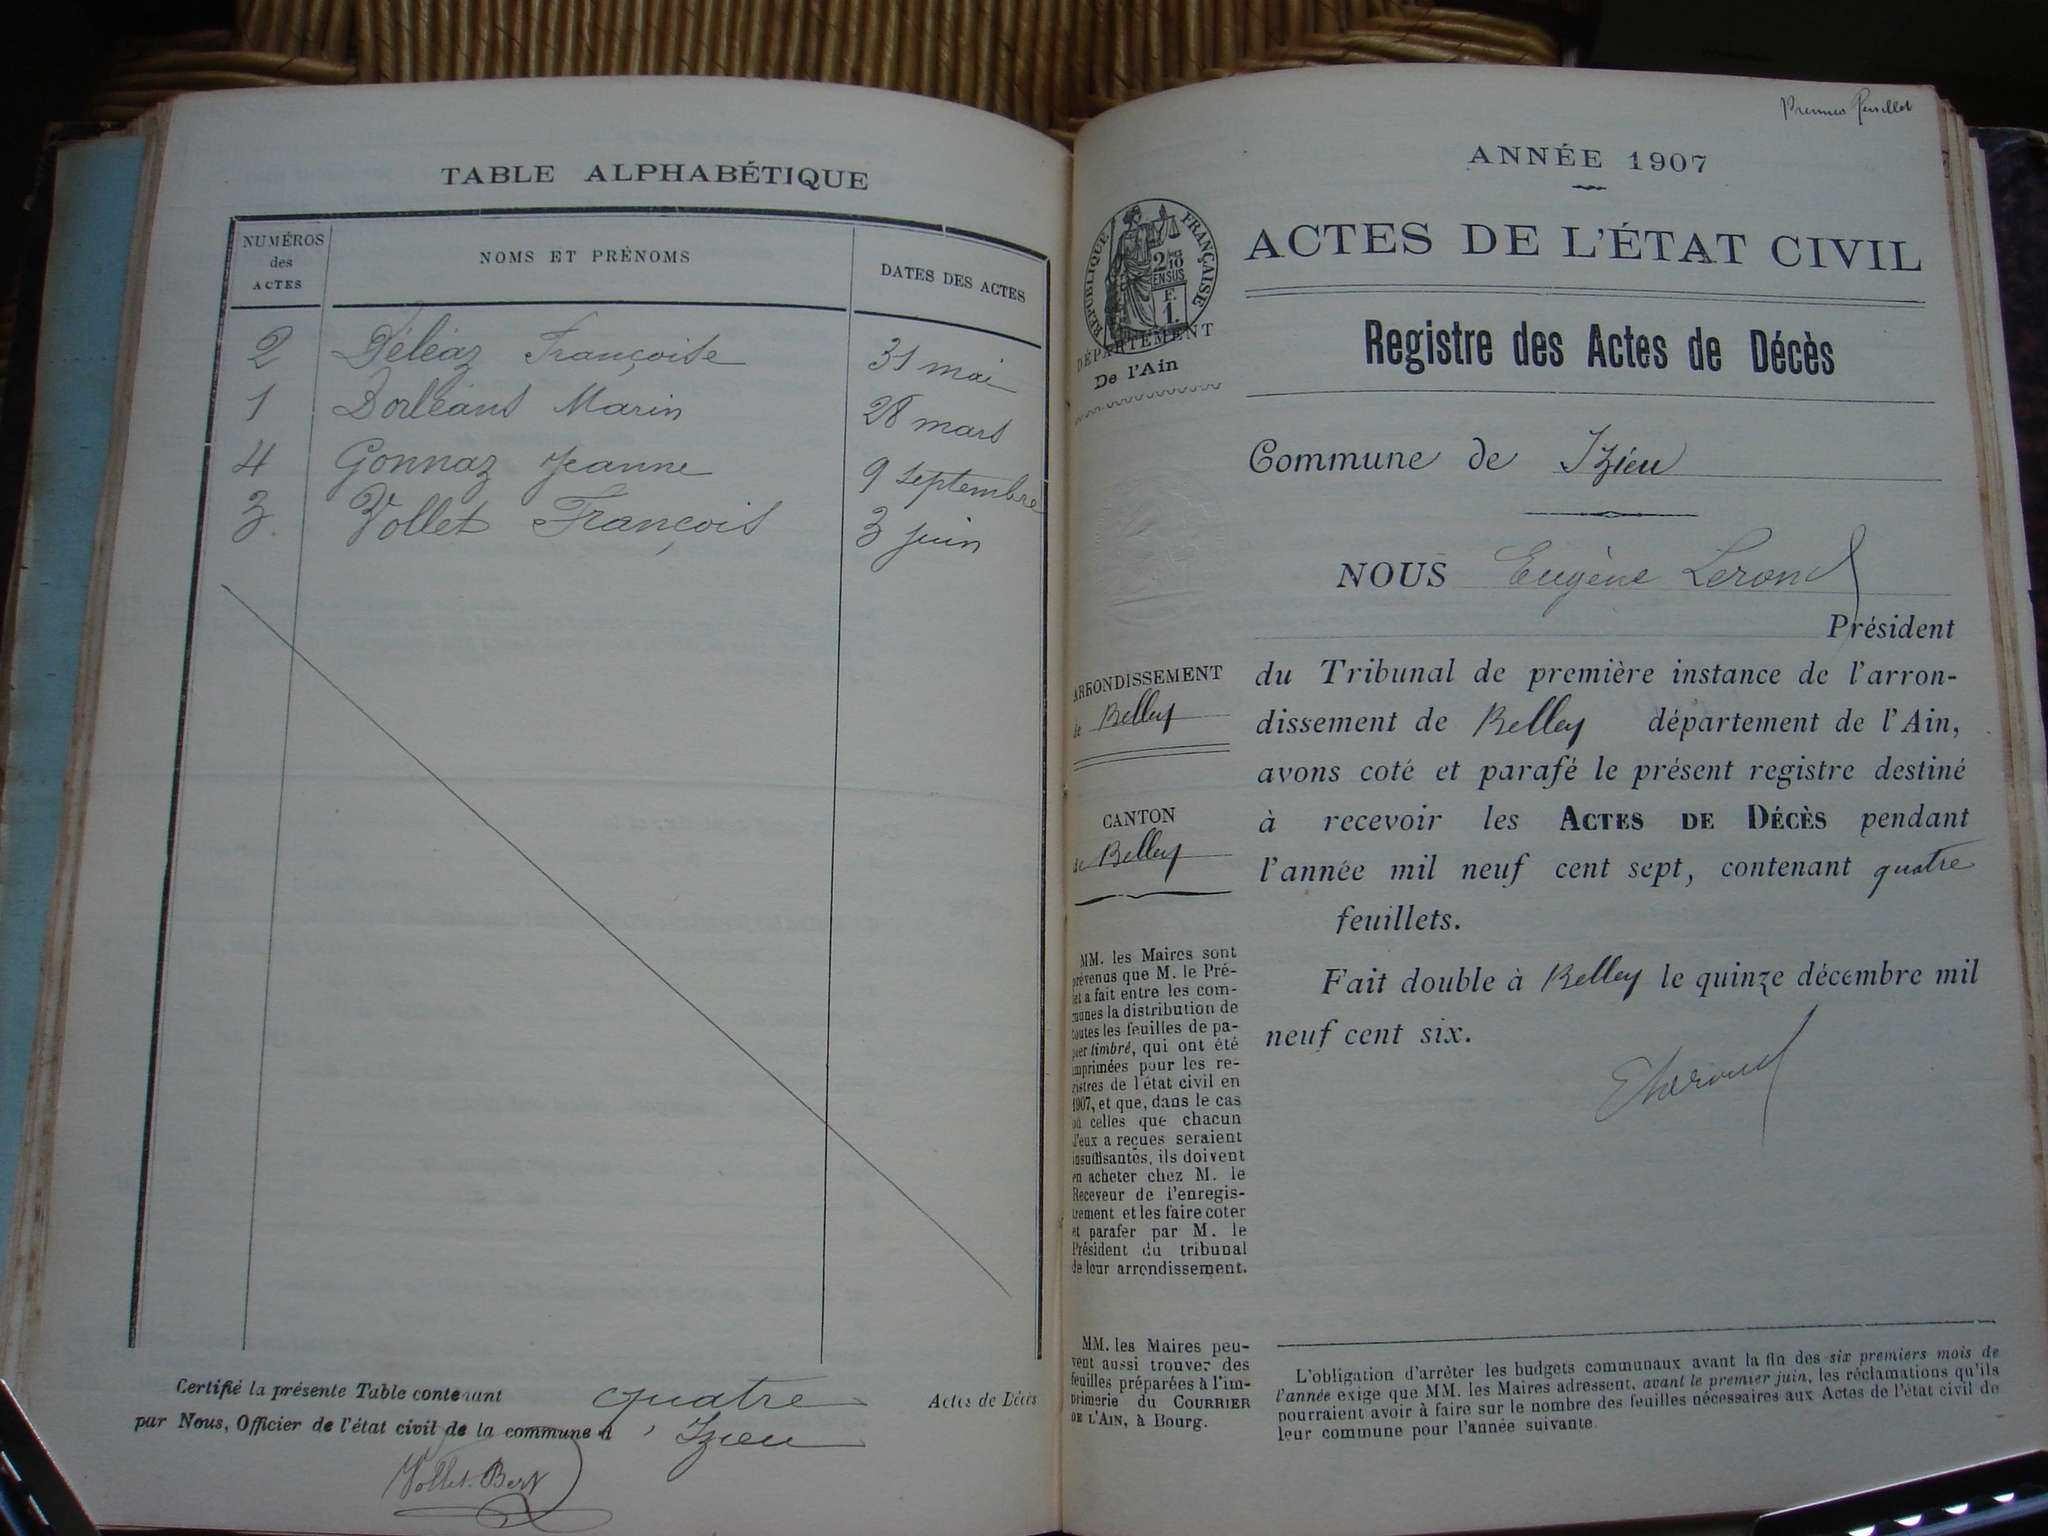 TABLE ALPHABÉTIQUE
NUMÉROS des ACTES NOMS ET PRÉNOMS DATES DES ACTES
2 Déléaz Françoise 31 mai
1 Dorléans Marin 28 mars
4 Gonnaz Jeanne 9 septembre
3. Vollet François 3 juin
Certifié la présente Table contenant quatre Actes de Décès
par Nous, Officier de l'état civil de la commune d'Izieu
Vollet-Bert
Premier feuillet
ANNÉE 1907
ACTES DE L'ÉTAT CIVIL
RÉPUBLIQUE FRANÇAISE
2/10 EN SUS
F.
1.
DÉPARTEMENT
De l'Ain
Registre des Actes de Décès
Commune de Izieu
NOUS Eugène Lerond
Président
du Tribunal de première instance de l'arron-
dissement de Belley département de l'Ain,
avons coté et parafé le présent registre destiné
à recevoir les ACTES DE DÉCÈS pendant
l'année mil neuf cent sept, contenant quatre
feuillets.
Fait double à Belley le quinze décembre mil
neuf cent six.
ELerond
ARRONDISSEMENT
de Belley
CANTON
de Belley
MM. les Maires sont
prévenus que M. le Pré-
fet a fait entre les com-
munes la distribution de
toutes les feuilles de pa-
pier timbré, qui ont été
imprimées pour les re-
gistres de l'état civil en
1907, et que, dans le cas
où celles que chacun
d'eux a reçues seraient
insuffisantes, ils doivent
en acheter chez M. le
Receveur de l'enregis-
trement et les faire coter
et parafer par M. le
Président du tribunal
de leur arrondissement.
MM. les Maires peu-
vent aussi trouver des
feuilles préparées à l'im-
primerie du COURRIER
DE L'AIN, à Bourg.
L'obligation d'arrêter les budgets communaux avant la fin des six premiers mois de
l'année exige que MM. les Maires adressent, avant le premier juin, les réclamations qu'ils
pourraient avoir à faire sur le nombre des feuilles nécessaires aux Actes de l'état civil de
leur commune pour l'année suivante.